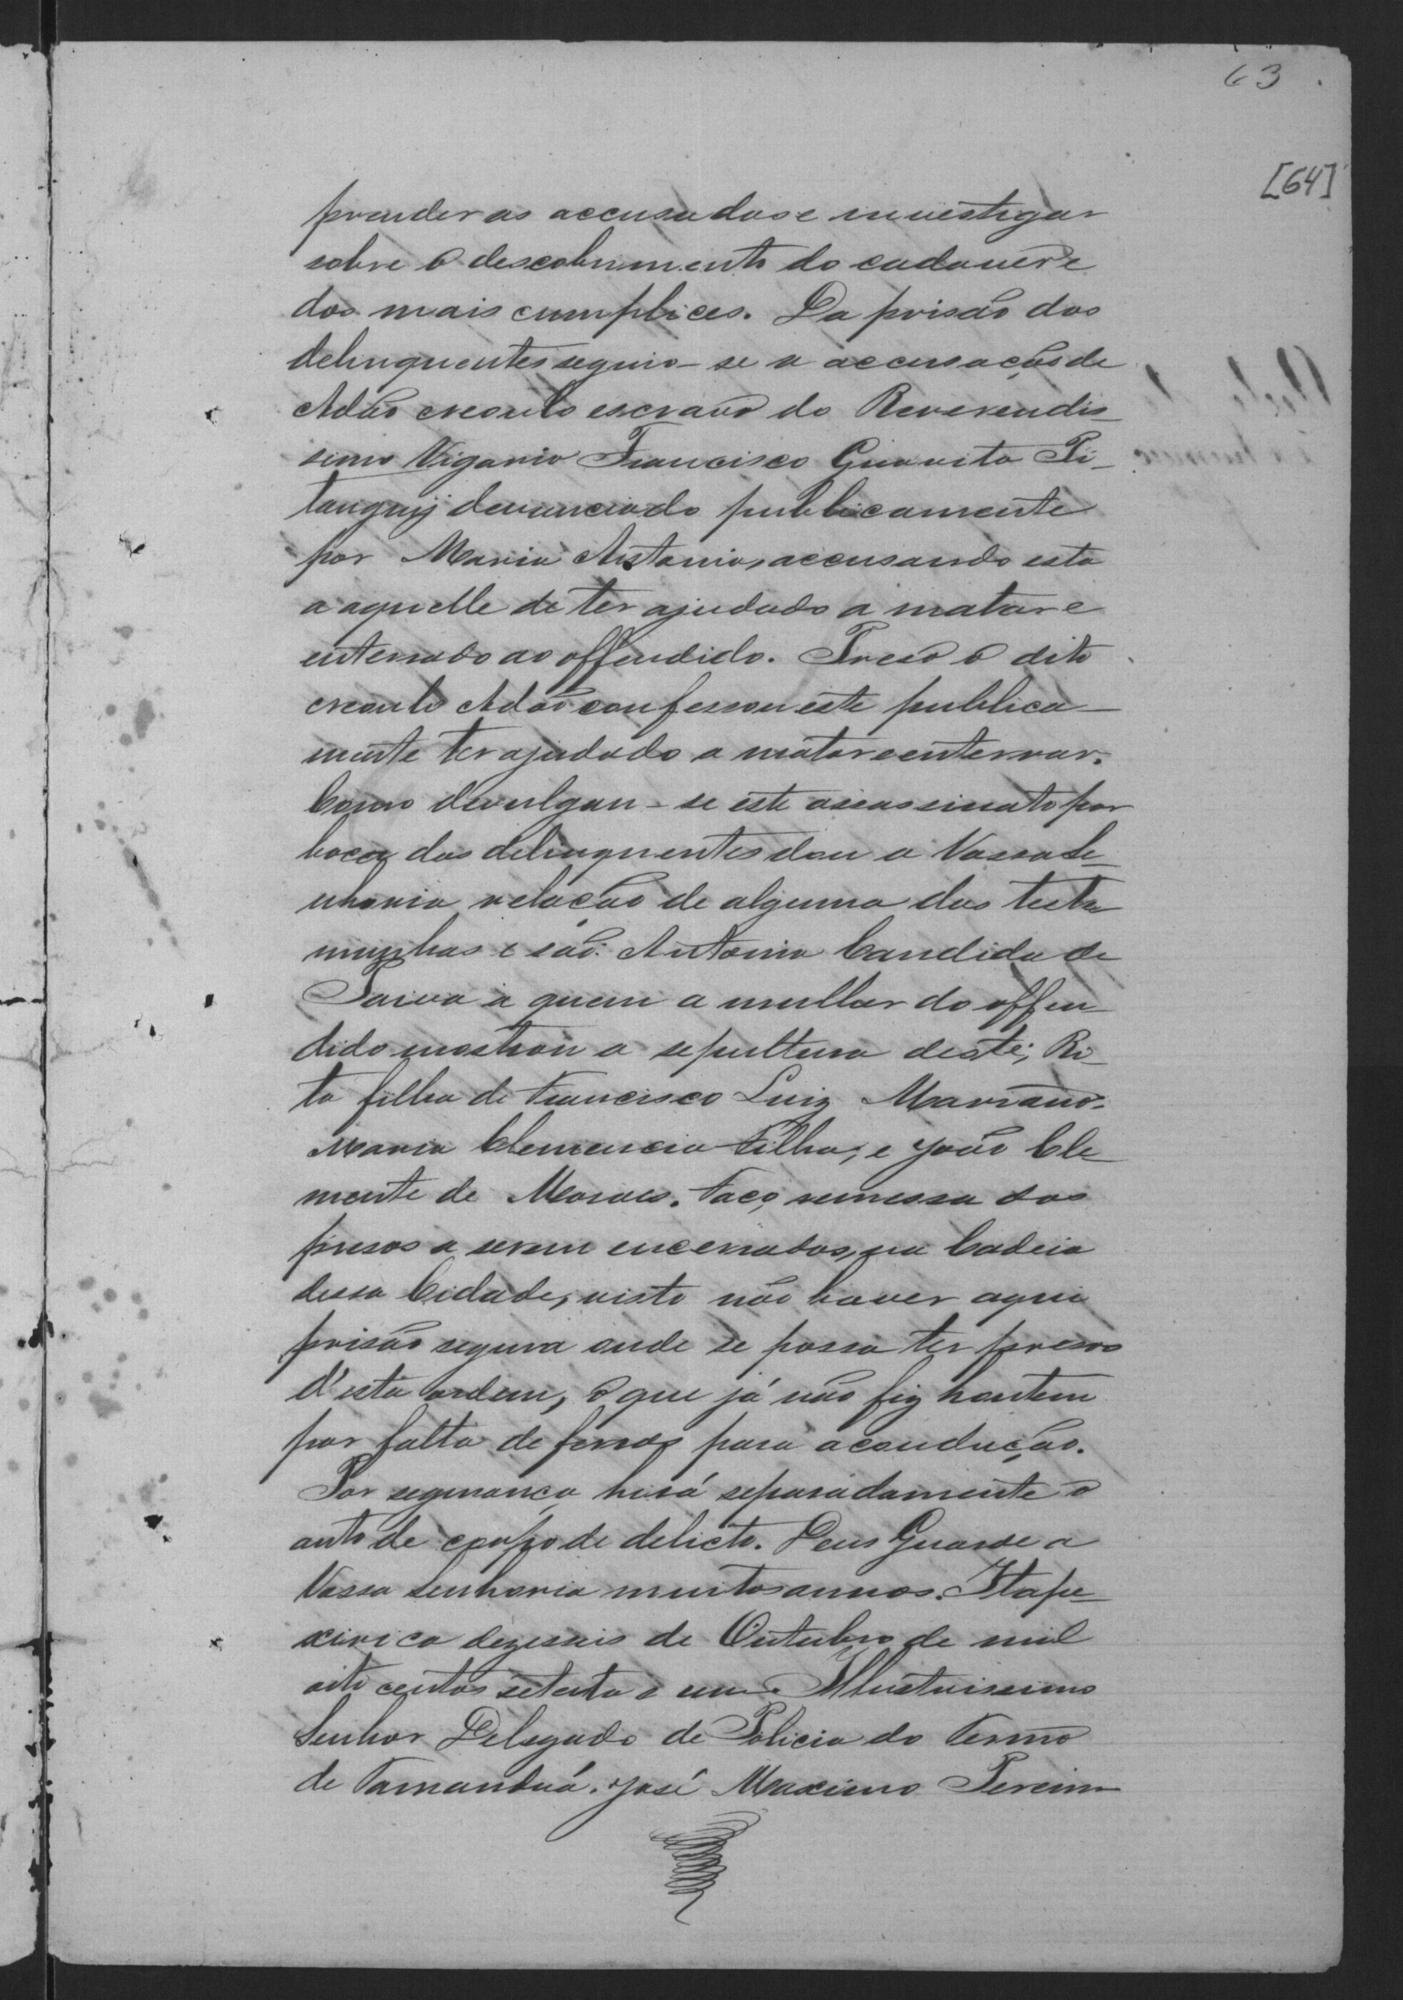 63
[64]
prender as accusadas e investigar
sobre o descobrimento do cadaver e
dos mais cumplices. Da prisão dos
delinquentes seguio-se a accusação de
Adão creoulo escravo do Reverendis-
simo Vigario Francisco Guarita Pi-
tanguÿ denunciado publicamente
por Maria Antonia, accusando esta
a aquelle de ter ajudado a matar e
enterrado ao offendido. Preso o dito
creoulo Adão confessou este publica-
mente ter ajudado a matar e enterrar.
Como divulgou-se este assassinato por
boca dos delinquentes dou a Vossa Se-
nhoria relação de alguma das teste
munhas e são: Antonio Candido de
Paiva a quem a mulher do offen-
dido mostrou a sepultura deste; Ri-
ta filha de Francisco Luiz Mariano.
Maria Clemencia Filha; e João Cle-
mente de Moraes. Faço remessa dos
presos a serem encerrados, na Cadeia
dessa Cidade, visto não haver aqui
prisão segura onde se possa ter presos
d'esta ordem, o que já não fiz hontem
por falta de ferros para a conducção.
Por segurança hirá separadamente o
auto de corpo de delicto. Deus Guarde a
Vossa Senhoria muitos annos. Itape-
xirica dezesseis de Outubro de mil
oito centos setenta e um. Illustrissimo
Senhor Delegado de Policia do Termo
de Tamanduá. José Maximo Pereira